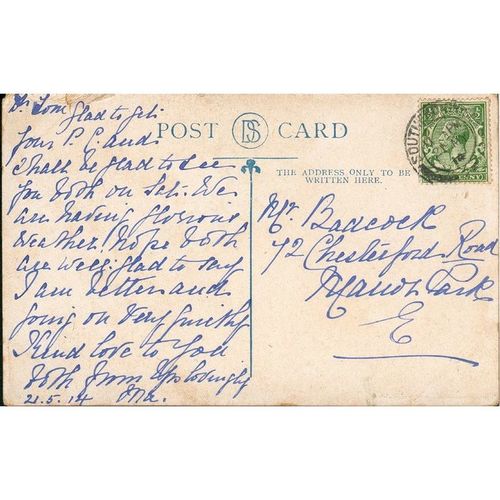 Dr Tom
Glad to get
your P.C. and
shall be glad to see
you both on Sat. We
are having glorious
weather. Hope both
are well. Glad to say
I am better and
going on very quietly
Kind love to you
both from yrs lovingly
21.5.14
POST DS CARD
THE ADDRESS ONLY TO BE
WRITTEN HERE.
Mr. Badcock
72 Chesterford Road
Manor Park
E